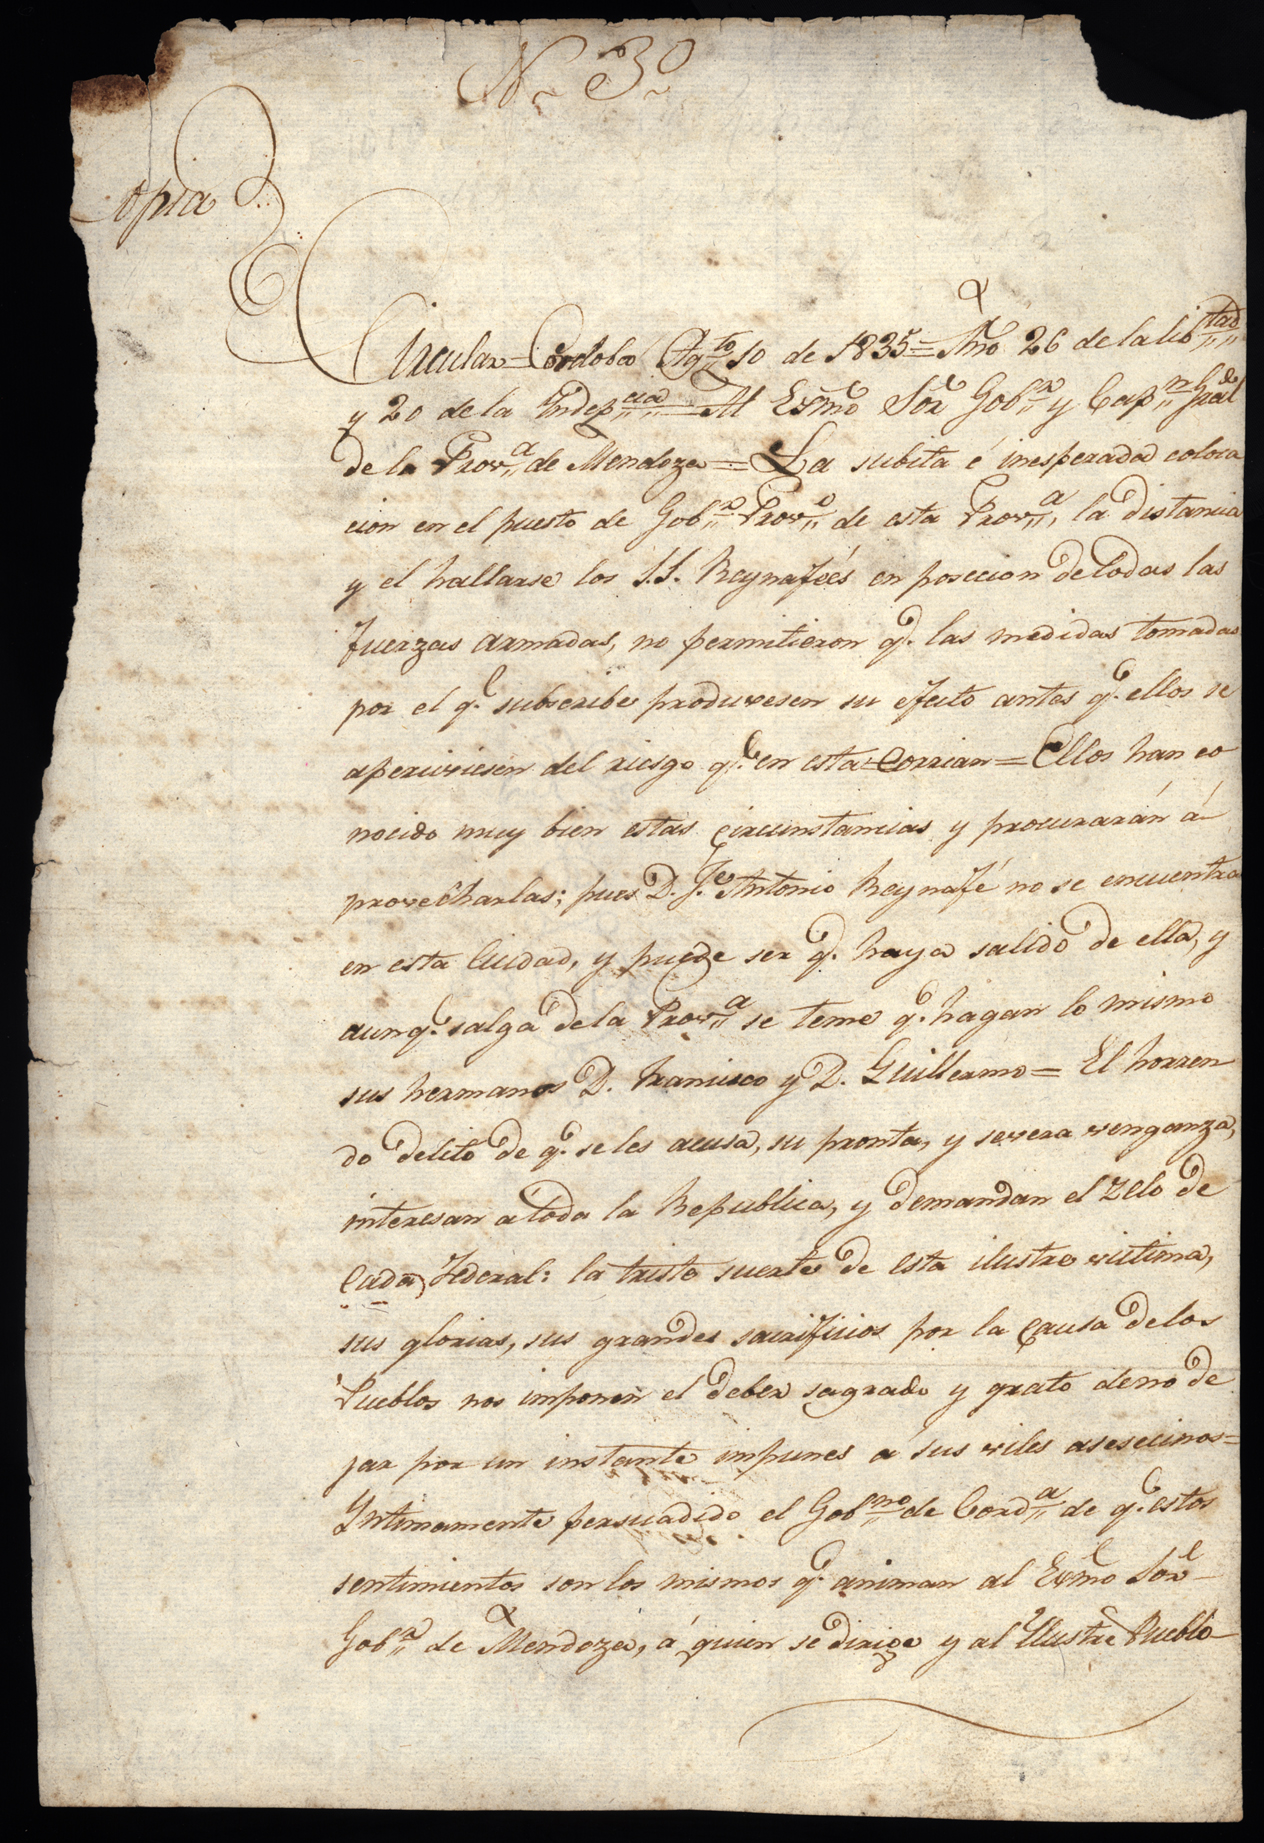 N. 30
Copia
Circular = Cordoba Ag.to 10 de 1835 = Año 26 de la lib.tad
y 20 de la Indep.cia = Al Exmo Sor Gob.r y Cap.n Gral
de la Prov.a de Mendoza = La subita é inesperada coloca
cion en el puesto de Gob.r Prov.o de esta Prov.a, la distancia
y el hallarse los S.S. Reynafeés en posecion de todas las
fuerzas armadas, no permitieron q.e las medidas tomadas
por el q.e subscribe produxesen su efecto antes q.e ellos se
aperciviesen del riesgo q.e en esta corrian = Ellos han co
nocido muy bien estas circunstancias y procurarán á
provecharlas; pues D. J.e Antonio Reynafé no se encuentra
en esta Ciudad, y puede ser q.e haya salido de ella, y
aunq.e salga de la Prov.a se teme q.e hagan lo mismo
sus hermanos D. Francisco y D. Guillermo = El horren
do delito de q.e se les acusa, su pronta, y severa venganza,
interesan a toda la Republica, y demandan el zelo de
Cada Federal: la triste suerte de esta ilustre victima,
sus glorias, sus grandes sacrificios por la causa de los
Pueblos nos imponen el deber sagrado y grato de no de
jar por un instante impunes a sus viles asesecinos =
Intimamente persuadido el Gob.no de Cord.a de q.e estos
sentimientos son los mismos q.e animan al Exmo Sor
Gob.r de Mendoza, á quien se dirige y al Ilustre Pueblo